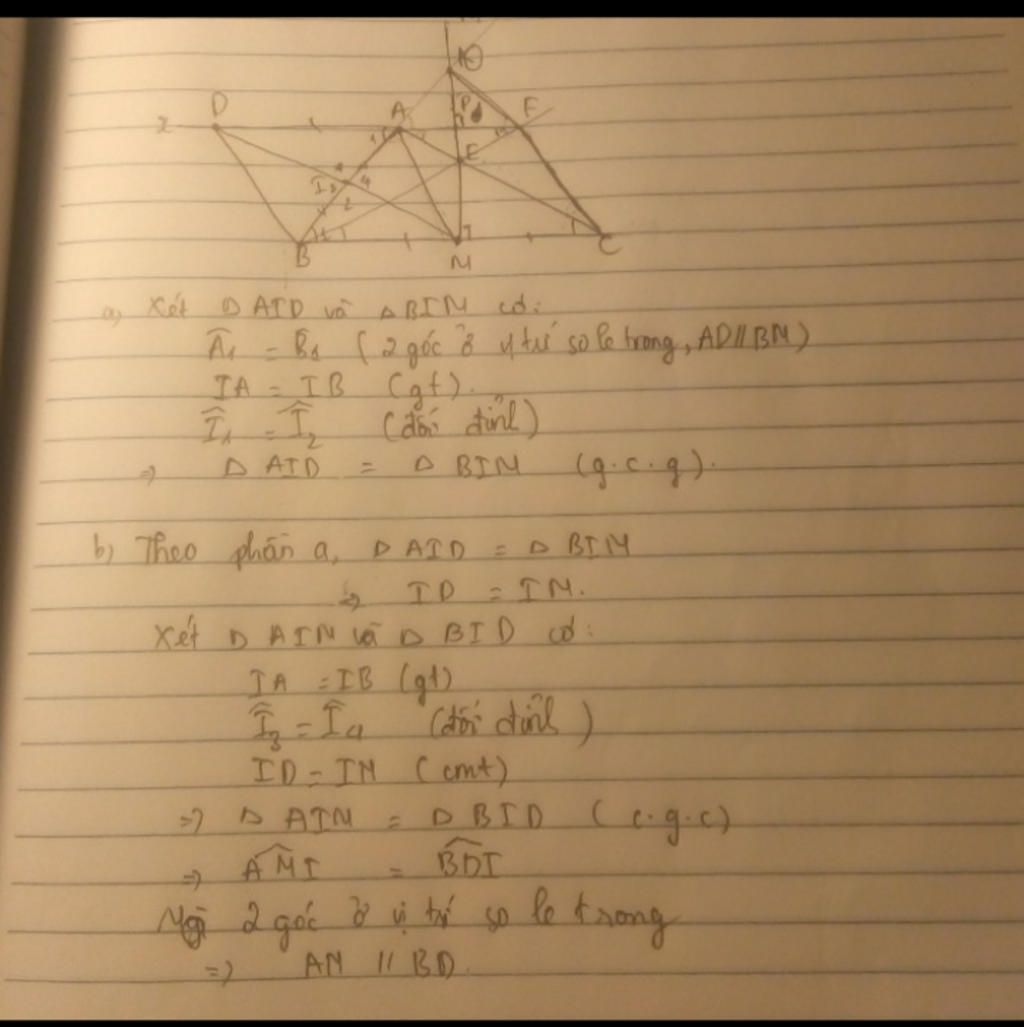 D
A
P
F
E
x
I
B
M
C
a, Xét Δ AID và Δ BIM có:
Â1 = B̂1 ( 2 góc ở vị trí so le trong, AD // BM )
IA = IB (gt).
Î1 = Î2 (đối đỉnh)
=> Δ AID = Δ BIM (g.c.g).
b) Theo phần a, Δ AID = Δ BIM
=> ID = IM.
Xét Δ AIM và Δ BID có:
IA = IB (gt)
Î3 = Î4 (đối đỉnh)
ID = IM (cmt)
=> Δ AIM = Δ BID ( c.g.c)
=> AMI = BDI
2 góc ở vị trí so le trong
=> AM // BD.